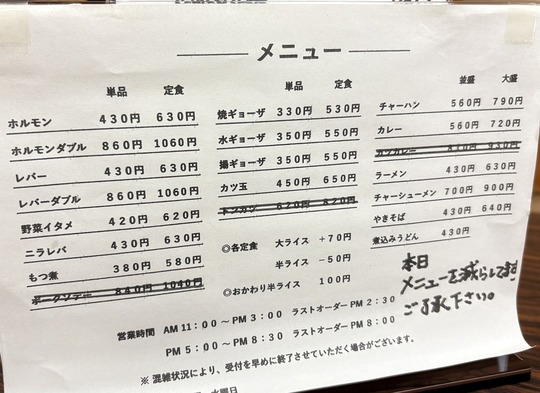 メニュー
単品 定食
ホルモン 430円 630円
ホルモンダブル 860円 1060円
レバー 430円 630円
レバーダブル 860円 1060円
野菜イタメ 420円 620円
ニラレバ 430円 630円
もつ煮 380円 580円
ポークソテー 840円 1040円
単品 定食
焼ギョーザ 330円 530円
水ギョーザ 350円 550円
揚ギョーザ 350円 550円
カツ玉 450円 650円
トンカツ 620円 820円
◎各定食 大ライス +70円
半ライス -50円
◎おかわり半ライス 100円
並盛 大盛
チャーハン 560円 790円
カレー 560円 720円
カツカレー 930円
ラーメン 430円 630円
チャーシューメン 700円 900円
やきそば 430円 640円
煮込みうどん 430円
本日
メニューを減らしてます
ご了承下さい。
営業時間 AM11:00～PM3:00 ラストオーダーPM2:30
PM5:00～PM8:30 ラストオーダーPM8:00
※混雑状況により、受付を早めに終了させていただく場合がございます。
水曜日